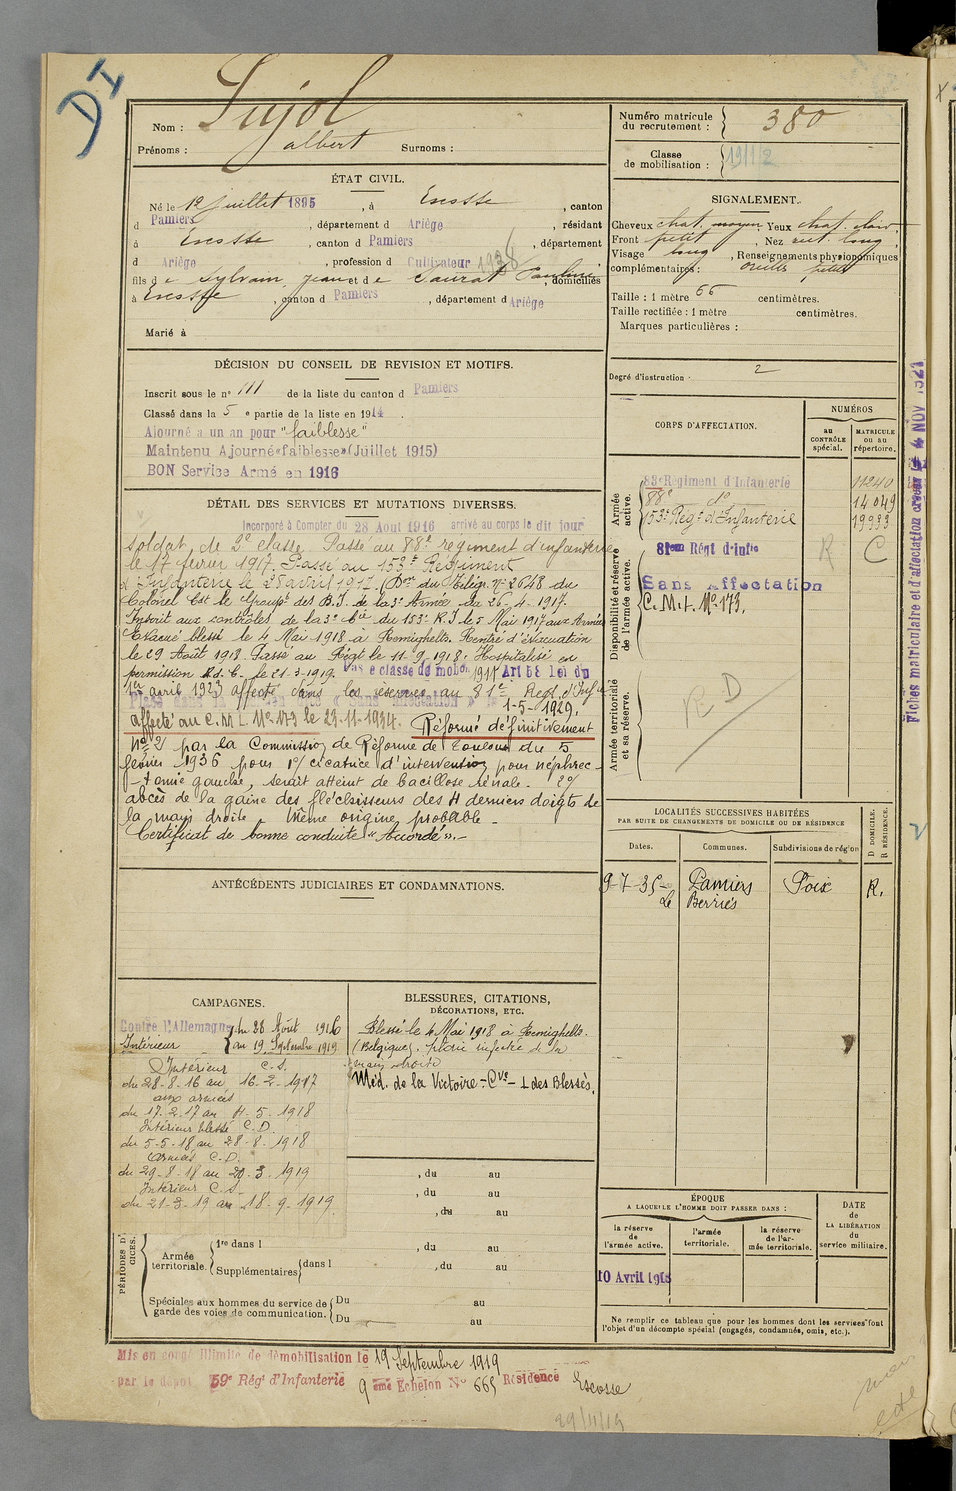 DI
Nom : Pujol
Prénoms : albert Surnoms :
Numéro matricule du recrutement : 380
Classe de mobilisation : 1912
ÉTAT CIVIL.
Né le 12 juillet 1895, à Escosse, canton
d Pamiers, département d Ariège, résidant
à Escosse, canton d Pamiers, département
d Ariège, profession d Cultivateur 1938
fils de Sylvain, Jean et de Saurat Pauline, domiciliés
à Escosse, canton d Pamiers, département d Ariège
Marié à
SIGNALEMENT.
Cheveux chat. moyen, Yeux chat. clair,
Front petit, Nez rect. long,
Visage long, Renseignements physionomiques
complémentaires : oreilles petites
Taille : 1 mètre 66 centimètres.
Taille rectifiée : 1 mètre centimètres.
Marques particulières :
Degré d'instruction : 2
DÉCISION DU CONSEIL DE REVISION ET MOTIFS.
Inscrit sous le n° 111 de la liste du canton d Pamiers
Classé dans la 5e partie de la liste en 1914.
Ajourné a un an pour "faiblesse"
Maintenu Ajourné « faiblesse » (Juillet 1915)
BON Service Armé en 1916
DÉTAIL DES SERVICES ET MUTATIONS DIVERSES.
Incorporé à Compter du 28 Aout 1916 arrivé au corps le dit jour
soldat de 2e classe. Passé au 88e regiment d'infanterie
le 17 fevrier 1917. Passé au 153e Regiment
d'Infanterie le 25 avril 1917. (Don du Télég. n° 2648 du
Colonel Cdt le Groupt des B.I. de la 3e Armée du 26-4-1917.
Inscrit aux contrôles de la 3e Cie du 153e R.I. le 5 Mai 1917 aux Armées
Evacué blessé le 4 Mai 1918 à Remighelts. Rentré d'évacuation
le 29 Août 1918. Passé au Régt le 11-9-1918. Hospitalisé en
permission le 21-3-1919. Passe classe de mobon 1917 Art 58 Loi du
1er avril 1923 affecté dans les réserves au 81e Regt d'Infie
Placé dans la position dite « Sans affectation » le 1-5-1929.
Affecté au C.M.I. No 173 le 23-11-1934. Réformé définitivement
No 2 par la Commission de Réforme de Toulouse du 5
février 1936 pour 1°/ cicatrice d'intervention pour néphrec-
-tomie gauche, serait atteint de bacillose rénale. 2°/
abcès de la gaine des fléchisseurs des 4 derniers doigts de
la main droite. Même origine probable.-
Certificat de bonne conduite « Accordé ».-
CORPS D'AFFECTATION.
NUMÉROS
au CONTRÔLE spécial.
MATRICULE ou au répertoire.
Armée active.
83e Régiment d'Infanterie 11240
88e do 14049
153e Régt d'Infanterie 19993
Disponibilité et réserve de l'armée active.
81eme Régt d'infie R C
Sans Affectation
C.M.I. No 173.
Armée territoriale et sa réserve.
RD
Fiches matriculaire et d'affectation creees le 4 NOV 1921
LOCALITÉS SUCCESSIVES HABITÉES
PAR SUITE DE CHANGEMENTS DE DOMICILE OU DE RÉSIDENCE
Dates. Communes. Subdivisions de région D DOMICILE. R RÉSIDENCE.
9-7-35- Pamiers Foix R.
Le Berriès
ANTÉCÉDENTS JUDICIAIRES ET CONDAMNATIONS.
CAMPAGNES.
Contre l'Allemagne du 28 Août 1916
Intérieur au 19 Septembre 1919
Intérieur C.S.
du 28-8-16 au 16-2-1917
aux armées
du 17-2-17 au 4-5-1918
Intérieur blessé C.D.
du 5-5-18 au 28-8-1918
Armées C.D.
du 29-8-18 au 20-3-1919
Intérieur C.S.
du 21-3-19 au 18-9-1919
BLESSURES, CITATIONS,
DÉCORATIONS, ETC.
Blessé le 4 Mai 1918 à Remighelts.
(Belgique). plaie infectée de la
main droite
Méd. de la Victoire - Cve - I. des Blessés.
, du au
, du au
, du au
PÉRIODES D'EXERCICES.
Armée territoriale. 1re dans l , du au
Supplémentaires dans l , du au
Spéciales aux hommes du service de garde des voies de communication. Du au
Du au
ÉPOQUE
A LAQUELLE L'HOMME DOIT PASSER DANS :
la réserve de l'armée active.
l'armée territoriale.
la réserve de l'armée territoriale.
DATE de LA LIBÉRATION du service militaire.
10 Avril 1918
Ne remplir ce tableau que pour les hommes dont les services font
l'objet d'un décompte spécial (engagés, condamnés, omis, etc.).
Mis en congé illimité de démobilisation le 19 Septembre 1919
par le dépôt 59e Régt d'Infanterie 9eme Echelon No 665 Résidence Escosse
29/11/19